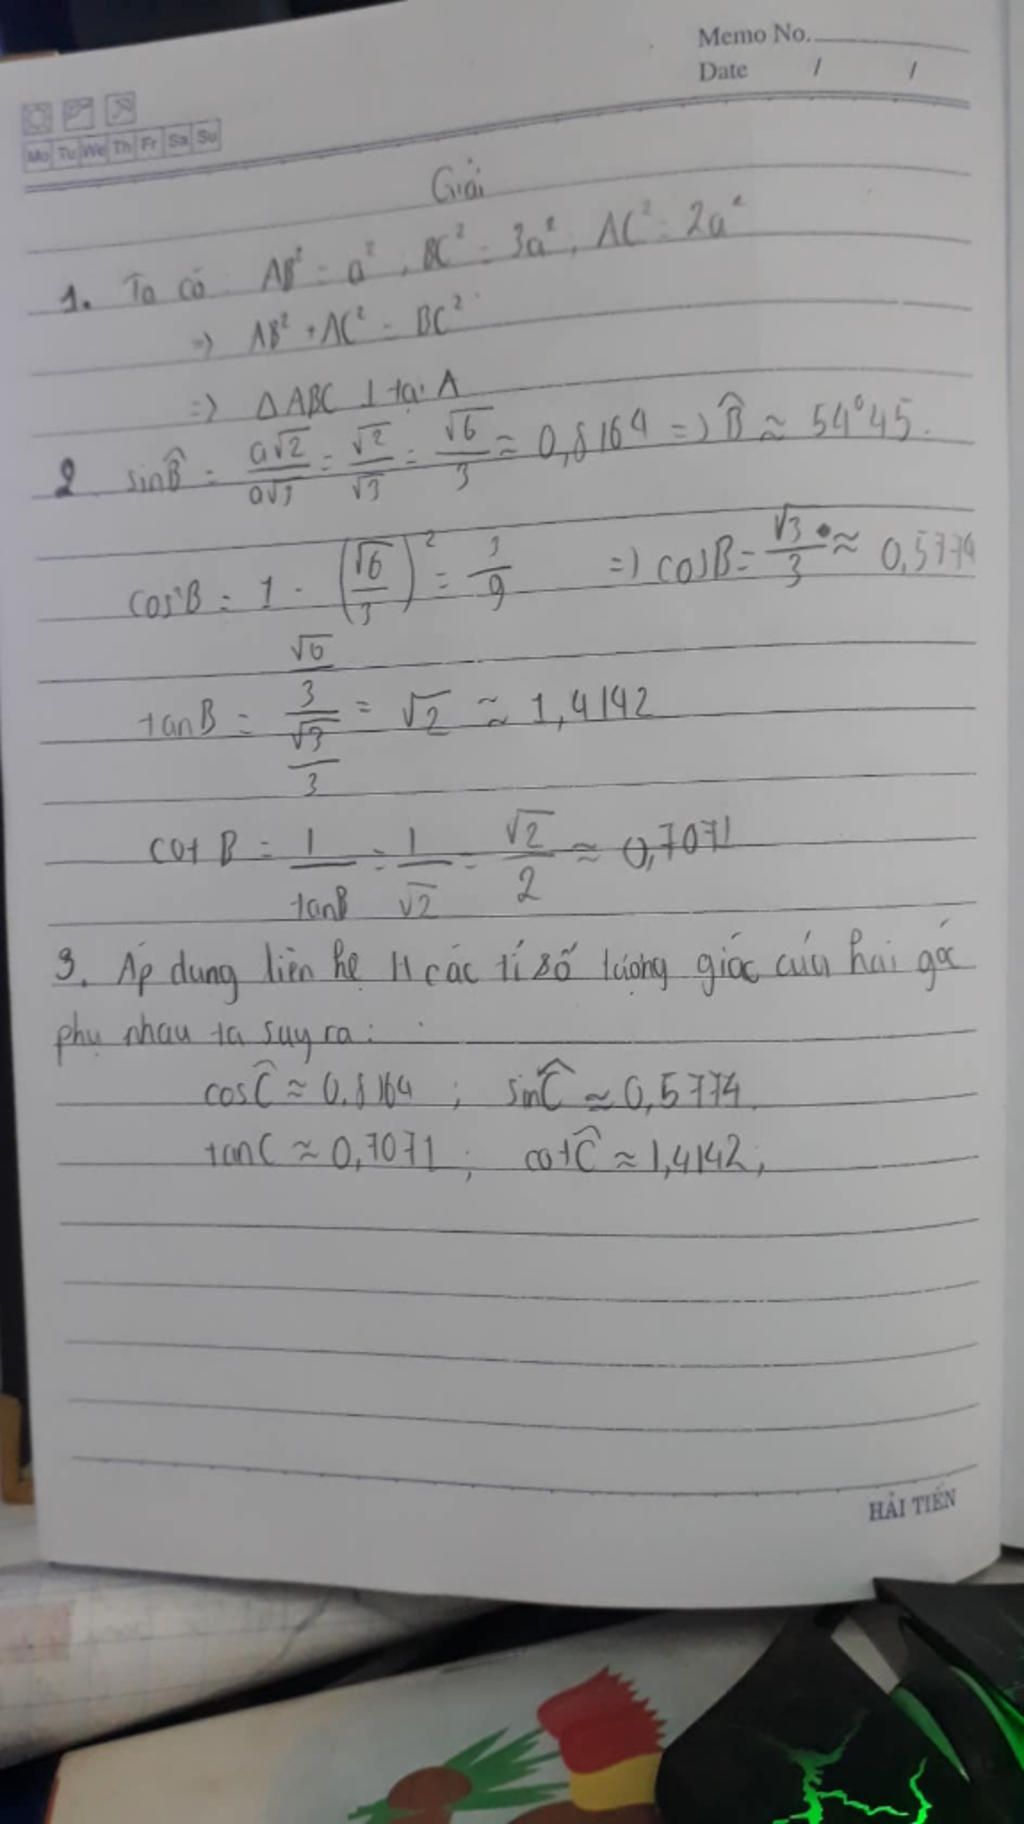 Memo No.
Date / /
Mo Tu We Th Fr Sa Su
Giải
1. Ta có AB² = a², BC² = 3a², AC² = 2a²
=> AB² + AC² = BC²
=> ΔABC ⊥ tại A
2 sinB̂ = a√2/a√3 = √2/√3 = √6/3 ≈ 0,8164 => B̂ ≈ 54°45.
cos²B = 1 - (√6/3)² = 3/9 => cosB = √3/3 ≈ 0,5774
tanB = (√6/3)/(√3/3) = √2 ≈ 1,4142
cot B = 1/tanB = 1/√2 = √2/2 ≈ 0,7071
3. Áp dung liên hệ H các tỉ số lượng giác của hai góc
phụ nhau ta suy ra:
cosĈ ≈ 0,8164 ; sinĈ ≈ 0,5774
tanC ≈ 0,7071 ; cotĈ ≈ 1,4142,
HẢI TIẾN